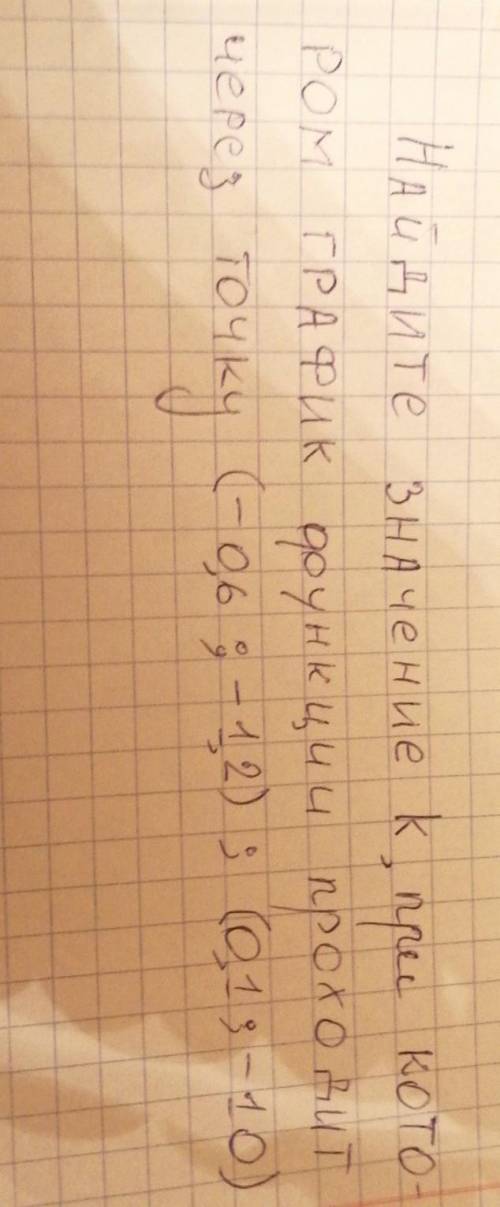 Найдите значение k, при кото-
ром график функции проходит
через точку (-0,6 ; -1,2) ; (0,1 ; -10)